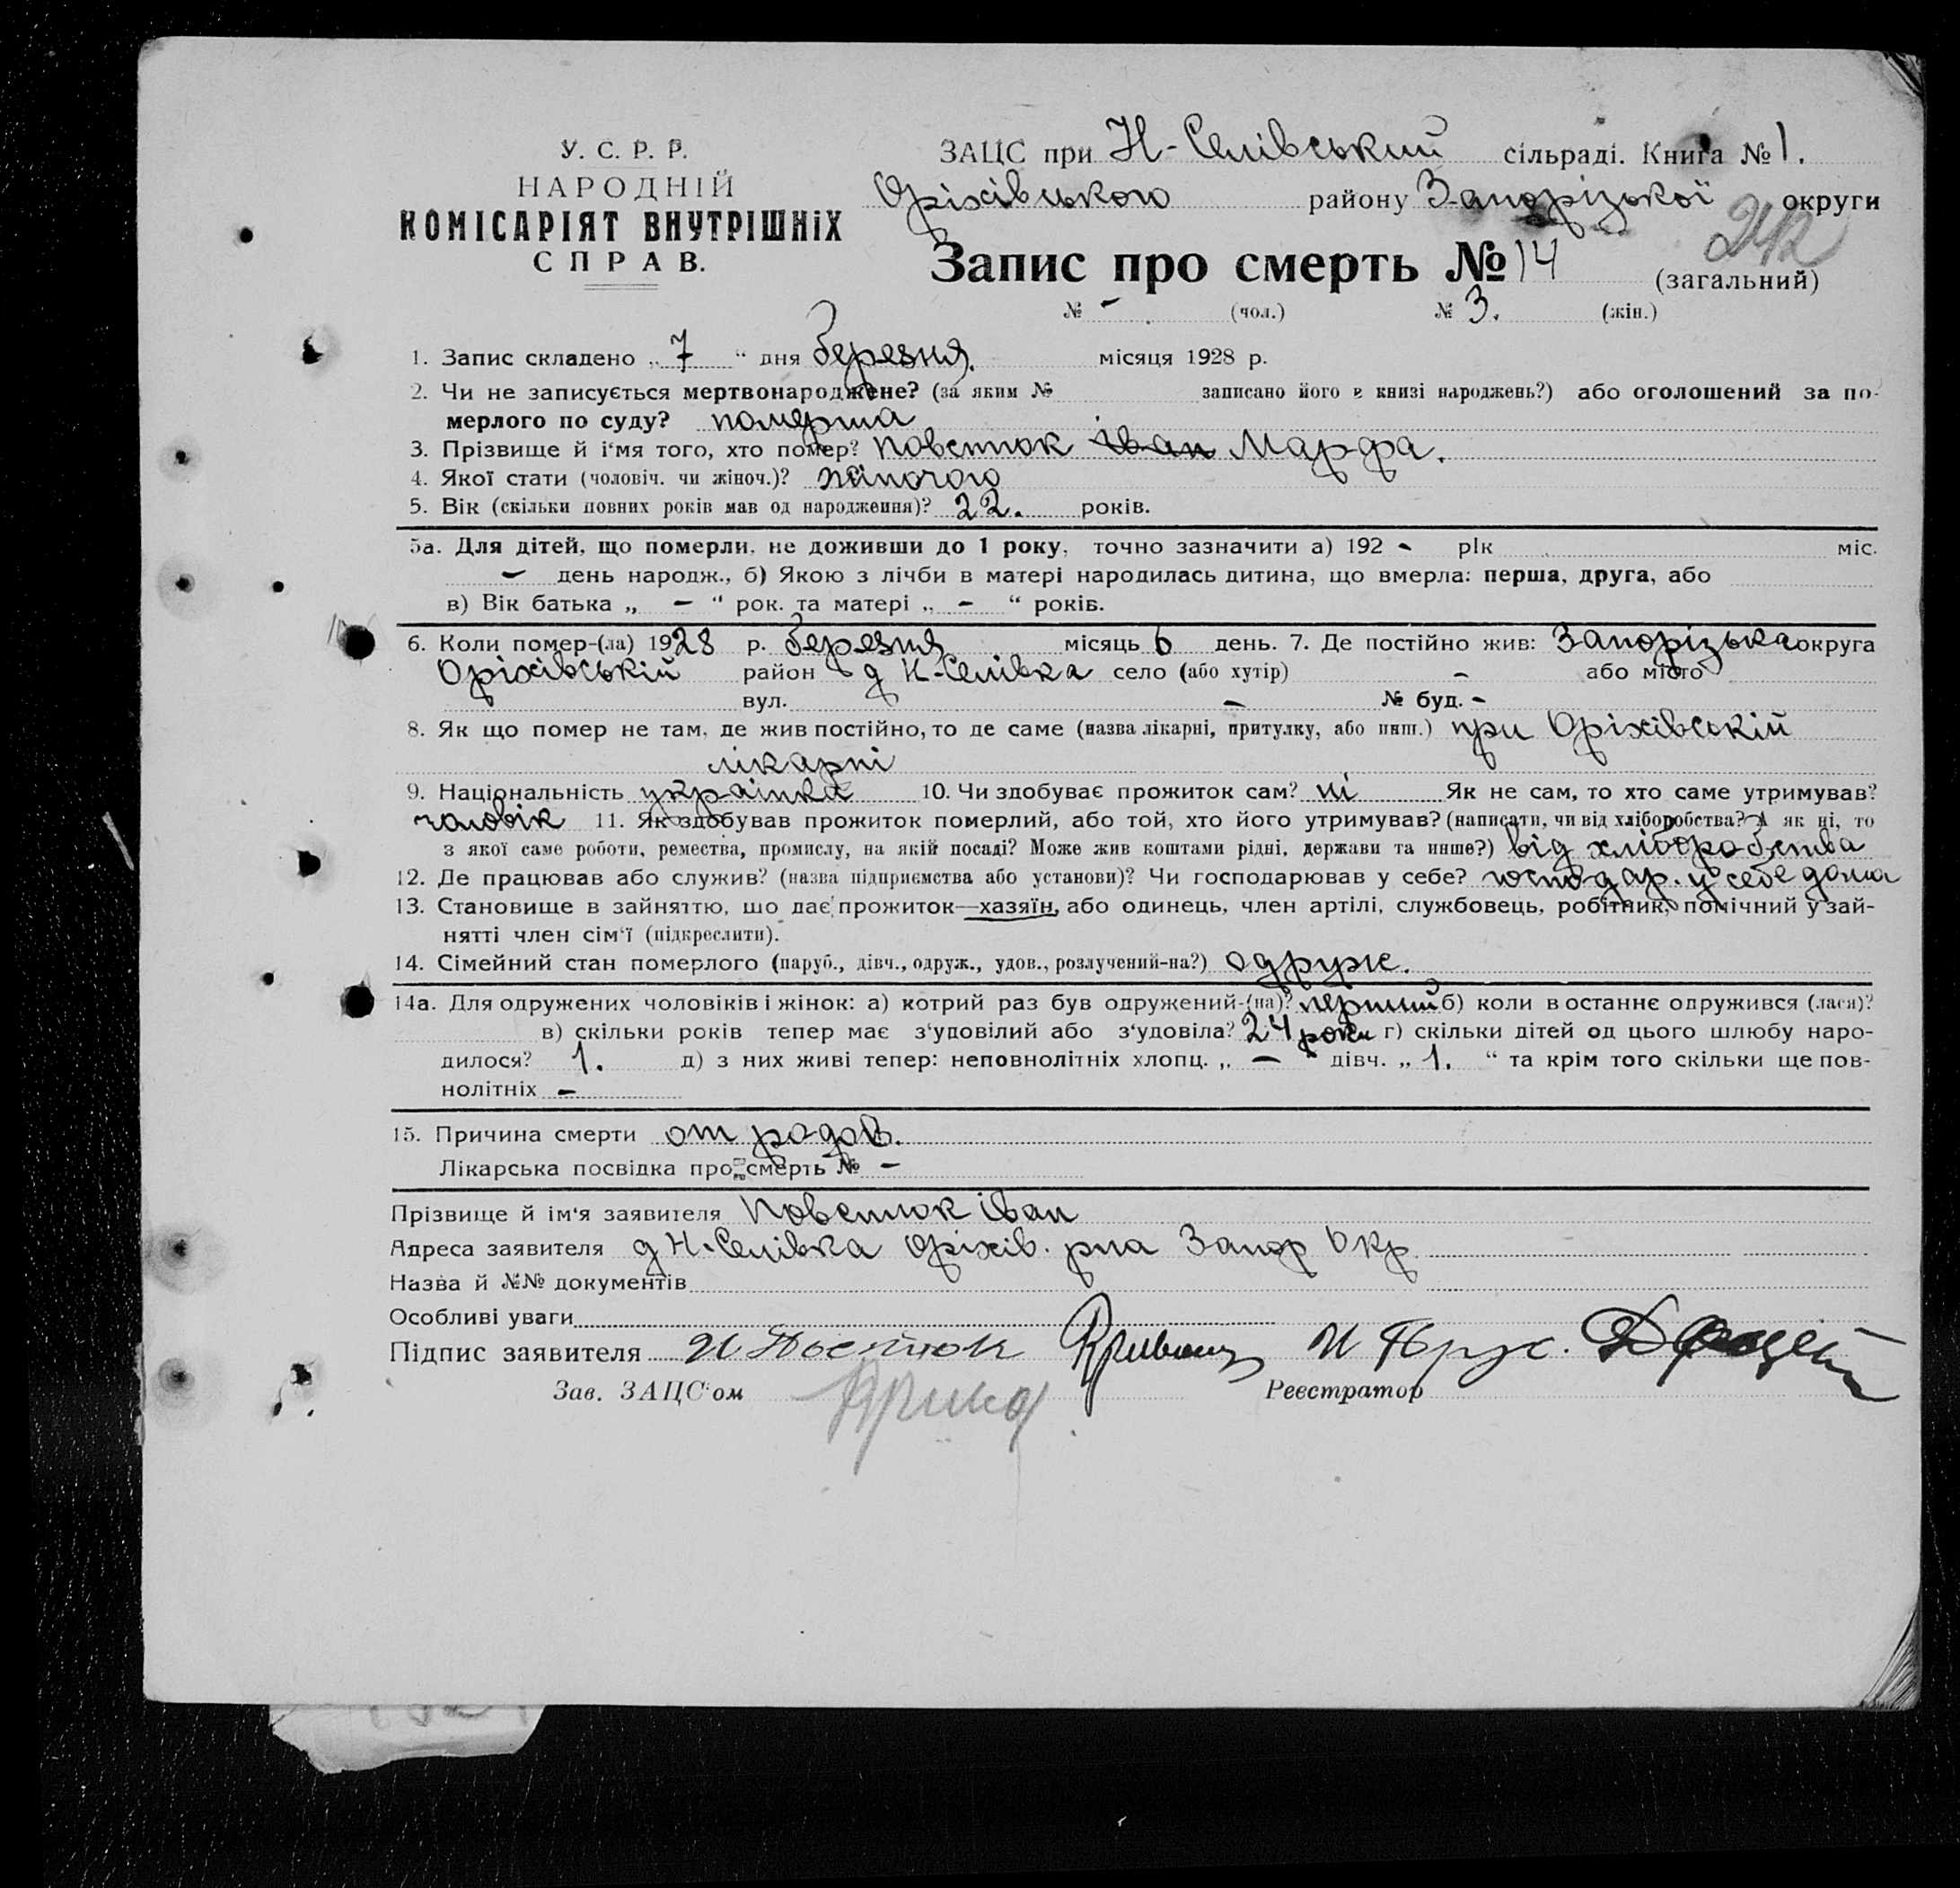 У. С. Р. Р.
НАРОДНІЙ
КОМІСАРІЯТ ВНУТРІШНІХ
СПРАВ.
ЗАЦС при Н-Селівський сільраді. Книга № 1.
Оріхівського району Запорізької округи
Запис про смерть № 14 (загальний)
№ - (чол.) № 3. (жін.)
1. Запис складено „ 7 “ дня березня. місяця 1928 р.
2. Чи не записується мертвонароджене? (за яким № записано його в книзі народжень?) або оголошений за по-
мерлого по суду? померша
3. Прізвище й і'мя того, хто помер? Повстюк Іван Марфа.
4. Якої стати (чоловіч. чи жіноч.)? жіночого
5. Вік (скільки повних років мав од народження)? 22. років.
5а. Для дітей, що померли, не доживши до 1 року, точно зазначити а) 192 - рік міс.
- день народж., б) Якою з лічби в матері народилась дитина, що вмерла: перша, друга, або
в) Вік батька „ - “ рок. та матері „ - “ років.
6. Коли помер-(ла) 1928 р. березня місяць 6 день. 7. Де постійно жив: Запорізька округа
Оріхівській район д Н-Селівка село (або хутір) - або місто
вул. - № буд. -
8. Як що помер не там, де жив постійно, то де саме (назва лікарні, притулку, або инш.) при Оріхівській
лікарні
9. Національність українка 10. Чи здобуває прожиток сам? ні Як не сам, то хто саме утримував?
чоловік 11. Як здобував прожиток померлий, або той, хто його утримував? (написати, чи від хліборобства? А як ні, то
з якої саме роботи, ремества, промислу, на якій посаді? Може жив коштами рідні, держави та инше?) від хліборобства
12. Де працював або служив? (назва підприємства або установи)? Чи господарював у себе? господар. у себе дома
13. Становище в зайняттю, що дає прожиток—хазяїн, або одинець, член артілі, службовець, робітник, помічний у зай-
нятті член сім'ї (підкреслити).
14. Сімейний стан померлого (паруб., дівч., одруж., удов., розлучений-на?) одруж.
14а. Для одружених чоловіків і жінок: а) котрий раз був одружений-(на)? перший б) коли востаннє одружився (лася)?
в) скільки років тепер має з'удовілий або з'удовіла? 24 роки г) скільки дітей од цього шлюбу наро-
дилося? 1. д) з них живі тепер: неповнолітніх хлопц. „ - “ дівч. „ 1. “ та крім того скільки ще пов-
нолітніх -
15. Причина смерти от родов.
Лікарська посвідка про смерть № -
Прізвище й ім'я заявителя Повстюк Іван
Адреса заявителя д Н-Селівка Оріхів. рна Запор Окр
Назва й №№ документів
Особливі уваги
Підпис заявителя
Зав. ЗАЦС'ом Реєстратор